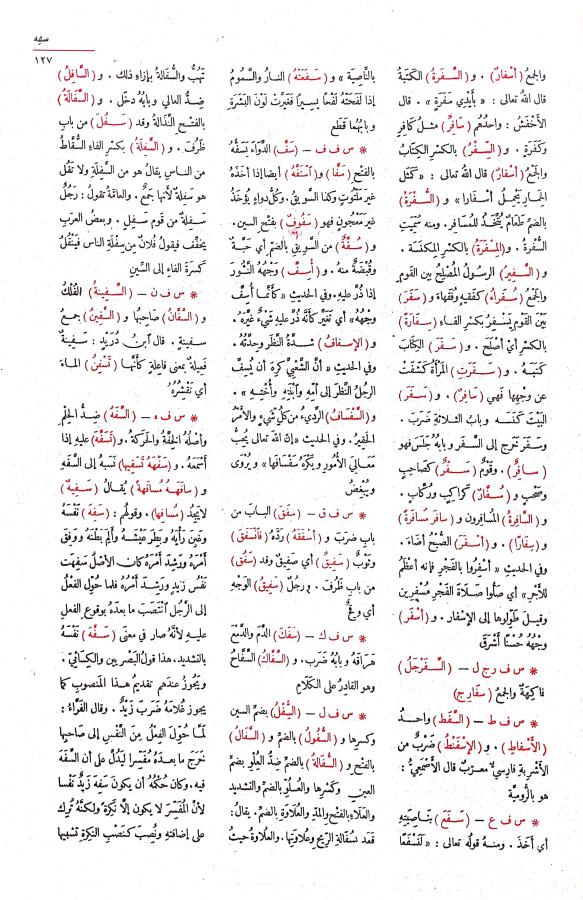 سفه
١٢٧
والجمعُ (أسْفارٌ) . و (السَّفَرةُ) الكَتَبةُ
قال اللهُ تعالى : « بأَيْدِي سَفَرَةٍ » . قال
الأَخْفَشُ : واحدُهم (سافِرٌ) مثلُ كافرٍ
وكَفَرةٍ . و (السِّفْرُ) بالكسْرِ الكِتابُ
والجمعُ (أسْفارٌ) قال اللهُ تعالى : « كمَثَلِ
الحِمارِ يَحْمِلُ أسْفارا » و (السُّفْرةُ)
بالضمِّ طَعامٌ يُتَّخَذُ للمُسافرِ . ومنه سُمِّيَتِ
السُّفْرةُ . و(المِسْفَرةُ) بالكَسْرِ المِكنَسَة .
و (السَّفِيرُ) الرسولُ المُصْلِحُ بين القَومِ
والجمعُ (سُفَراءُ) كفَقِيهٍ وفُقَهاءَ و (سَفَرَ)
بَيْنَ القَوْمِ يَسْفِرُ بكسرِ الفاءِ (سِفارَةً)
بالكسرِ أي أصْلَحَ . و (سَفَرَ) الكِتابَ
كَتَبَهُ . و (سَفَرَتِ) المَرْأةُ كَشَفَتْ
عن وجْهِها فهي (سافِرٌ) . و (سَفَرَ)
البَيْتَ كَنَسَه وبابُ الثلاثةِ ضَرَبَ .
وسَفَرَ خَرَج إلى السَّفَرِ وبابُه جَلَسَ فهو
(سافِرٌ) . وقَوْمٌ (سَفْرٌ) كصاحِبٍ
وصَحْبٍ و (سُفَّارٌ) كراكِبٍ ورُكَّابٍ .
و (السافِرةُ) المُسافِرون و (سافَرَ مُسافَرةً)
و (سِفارًا) . و (أسْفَرَ) الصُّبْحُ أضاءَ .
وفي الحديثِ « أسْفِرُوا بالفَجْرِ فإنه أعْظَمُ
للأَجْرِ » أي صَلُّوا صَلاةَ الفَجْرِ مُسْفِرين
وقيلَ طَوِّلوها إلى الإسْفارِ . و (أسْفَرَ)
وجْهُهُ حُسْنًا أشْرَقَ
* س ف ر ج ل – (السَّفَرْجَلُ)
فاكِهةٌ والجمعُ (سَفارِج)
* س ف ط – (السَّفَط) واحدُ
(الأَسْفاطِ) . و (الإِسْفَنْطُ) ضَرْبٌ من
الأَشْرِبةِ فارسِيٌّ معرّبٌ قال الأَصْمَعِيُّ :
هو بالرُّومِيَّةِ
* س ف ع – (سَفَعَ) بنَاصِيَتِهِ
أي أخَذَ . ومنهُ قولُه تعالى : « لَنَسْفَعًا
بالنَّاصِيةِ » و (سَفَعَتْهُ) النارُ والسَّمُومُ
إذا لَفَحَتْهُ لَفْحًا يَسيرًا فغَيَّرَتْ لَوْنَ البَشَرَةِ
وبابُهما قَطَع
* س ف ف – (سَفَّ) الدَّوَاءَ يَسَفُّهُ
بالفتحِ (سَفًّا) و (اسْتَفَّهُ) أيضا إذا أخَذَهُ
غيرَ مَلْتُوتٍ وكذا السَّوِيقُ . وكلُّ دواءٍ يُؤْخَذُ
غيرَ معجونٍ فهو (سَفُوفٌ) بفتحِ السين .
و (سُفَّةٌ) من السَّوِيقِ بالضم أي حَبَّةٌ
وقَبْضَةٌ منه . و (أُسِفَّ) وجْهُهُ النَّؤُورَ
إذا ذُرَّ عليهِ . وفي الحديثِ « كأنما أُسِفَّ
وجْهُهُ » أي تغيَّر كأنَّهُ ذُرَّ عليهِ شيءٌ غيَّرَهُ .
و (الإسْفافُ) شِدَّةُ النَّظَرِ وحِدَّتُهُ .
وفي الحديثِ « أنَّ الشَّعْبِيَّ كَرِهَ أن يُسِفَّ
الرجُلُ النَّظَرَ إلى أُمِّهِ وابْنَتِهِ وأُخْتِهِ » .
و (السَّفْسافُ) الرَّديءُ من كلِّ شيءٍ والأمْرُ
الحَقِيرُ . وفي الحديثِ «إنَّ اللهَ تعالى يُحِبُّ
مَعاليَ الأُمورِ ويَكْرَهُ سَفْسافَها» ويُرْوَى
ويُبْغِضُ
* س ف ق – (سَفَقَ) البابَ من
بابِ ضَرَبَ و (أسْفَقَهُ) رَدَّهُ (فانْسَفَقَ)
وثَوْبٌ (سَفِيقٌ) أي صَفِيقٌ وقد (سَفُقَ)
من بابِ ظَرُفَ . ورجُلٌ (سَفِيقُ) الوَجْهِ
أي وَقِحٌ
* س ف ك – (سَفَكَ) الدَّمَ والدَّمْعَ
هَرَاقَهُ وبابُهُ ضَرَبَ . و (السَّفَّاكُ) السَّفَّاحُ
وهو القادِرُ على الكلامِ
* س ف ل – (السُّفْلُ) بضم السين
وكسرِها و (السُّفُولُ) بالضمِّ و (السَّفَالُ)
بالفتحِ و (السُّفَالةُ) بالضمِّ ضِدُّ العُلْوِ بضمِّ
العينِ وكَسْرِها والعُلُوِّ بالضمِّ والتشديدِ
والعَلَاءِ بالفتحِ والمدِّ والعُلَاوةِ بالضمِّ . يقالُ :
قعَدَ بسُفَالةِ الرِّيحِ وعُلاوَتِها . والعُلَاوةُ حيثُ
تَهُبُّ والسُّفَالةُ بإزاءِ ذلك . و (السَّافِلُ)
ضِدُّ العالي وبابُهُ دخَل . و (السَّفَالَةُ)
بالفتحِ النَّذَالةُ وقد (سَفُلَ) من بابِ
ظَرُفَ . و (السَّفِلَةُ) بكسرِ الفاءِ السُّقَّاطُ
من الناسِ يقالُ هو من السَّفِلَةِ ولا تَقُلْ
هو سَفِلةٌ لأنها جَمْعٌ . والعامّةُ تقولُ : رَجُلٌ
سَفِلةٌ من قومٍ سَفِلٍ . وبعضُ العربِ
يخفِّفُ فيقولُ فُلانٌ من سِفْلَةِ الناسِ فيَنْقُلُ
كسرةَ الفاءِ إلى السِّينِ
* س ف ن – (السَّفِينةُ) الفُلْكُ
و (السَّفَّانُ) صاحِبُها و (السَّفِينُ) جمعُ
سفينةٍ . قال ابنُ دُرَيْدٍ : سفِينةٌ
فَعِيلةٌ بمعنى فاعلةٍ كأنَّها (تَسْفِنُ) الماءَ
أي تَقْشُرُهُ
* س ف ه – (السَّفَهُ) ضِدُّ الحِلْمِ
وأصْلُهُ الخِفَّةُ والحَرَكةُ . و (تَسَفَّهَ) عليهِ إذا
أسْمَعَهُ . و (سَفَّهَهُ تَسْفِيهًا) نَسَبهُ إلى السَّفَهِ
و (سافَهَهُ مُسافَهةً) يُقالُ (سَفِيهٌ)
لا يَجِدُ (مُسافِهًا) . وقولُهم : (سَفِهَ) نَفْسَهُ
وغَبِنَ رَأْيَهُ وبَطِرَ عَيْشَهُ وأَلِمَ بَطْنَهُ ووَفِقَ
أمْرَهُ ورَشِدَ أمْرَهُ كان الأصْلُ سَفِهَتْ
نَفْسُ زيدٍ ورَشِدَ أمْرُهُ فلما حُوِّلَ الفِعْلُ
إلى الرَّجُلِ انْتَصَبَ ما بعدَهُ بوقوعِ الفعلِ
عليهِ لأنَّهُ صار في معنى (سَفَّهَ) نَفْسَهُ
بالتشديدِ . هذا قولُ البَصْرِيين والكِسائيِّ .
ويَجوزُ عندَهم تقديمُ هذا المنصوبِ كما
يجوزُ غلامَهُ ضَرَبَ زَيْدٌ . وقال الفَرَّاءُ :
لمَّا حُوِّلَ الفِعْلُ مِنَ النَّفْسِ إلى صاحِبِها
خَرَجَ ما بعدهُ مُفَسِّرا ليَدُلَّ على أن السَّفَهَ
فيه . وكان حُكْمُهُ أن يكونَ سَفِهَ زَيْدٌ نَفْسا
لأنَّ المُفَسِّرَ لا يكونُ إلَّا نَكِرَةً ولكنَّهُ تُرِكَ
على إضافتِهِ ونُصِبَ كنَصْبِ النكِرةِ تشبيها